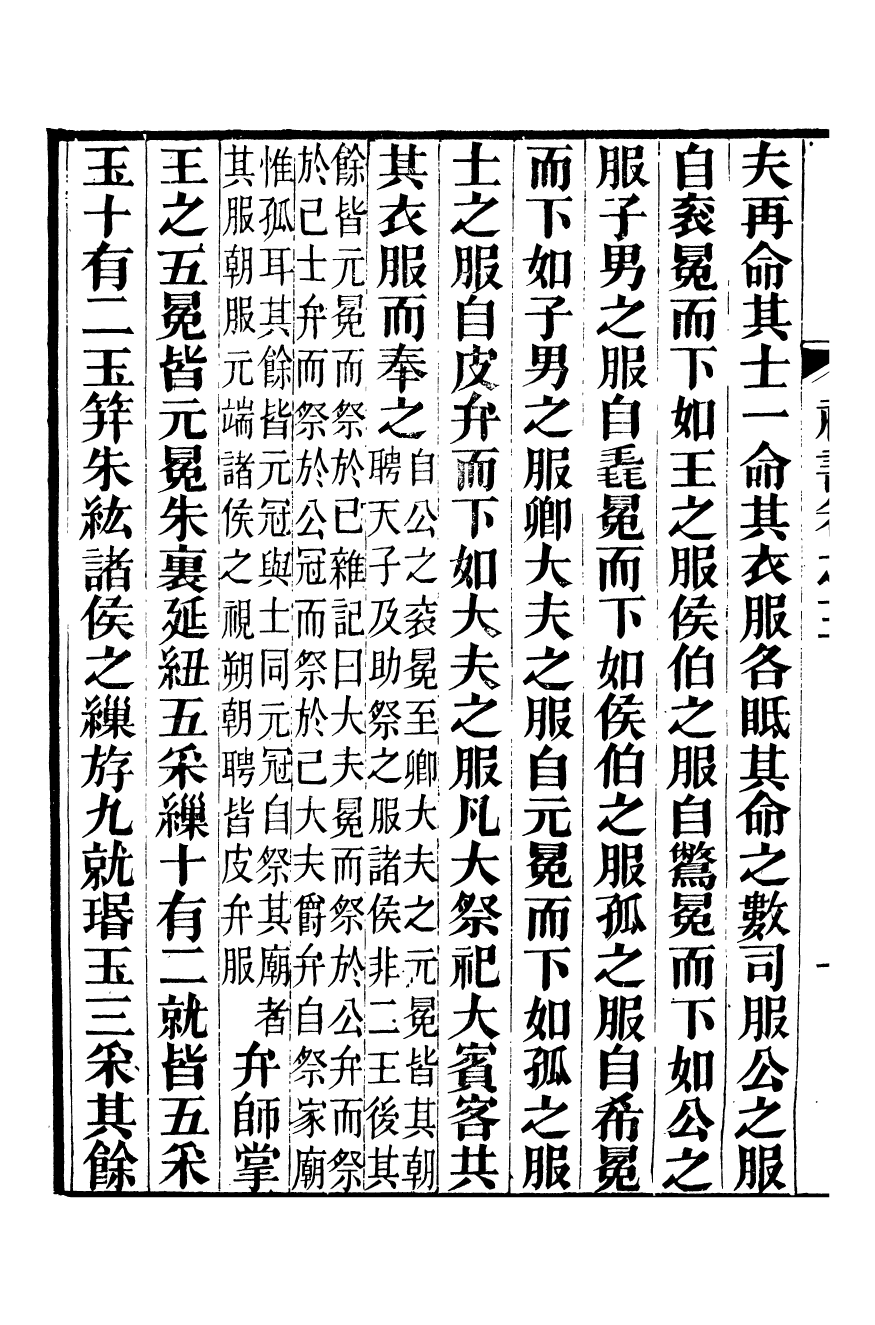 夫再命其士一命其衣服各眡其命之數司服公之服
自衮冕而下如王之服侯伯之服自鷩冕而下如公之
服子男之服自毳冕而下如侯伯之服孤之服自希冕
而下如子男之服卿大夫之服自元冕而下如孤之服
士之服自皮弁而下如大夫之服凡大祭祀大賓客共
其衣服而奉之
自公之衮冕至卿大夫之元冕皆其朝
聘天子及助祭之服諸侯非二王後其
餘皆元冕而祭於已雜記曰大夫冕而祭於公弁而祭
於己士弁而祭於公冠而祭於己大夫爵弁自祭家廟
惟孤耳其餘皆元冠與士同元冠自祭其廟者
其服朝服元端諸侯之視朔朝聘皆皮弁服
弁師掌
王之五冕皆元冕朱裏延紐五采繅十有二就皆五采
玉十有二玉笄朱紘諸侯之繅斿九就瑉玉三采其餘